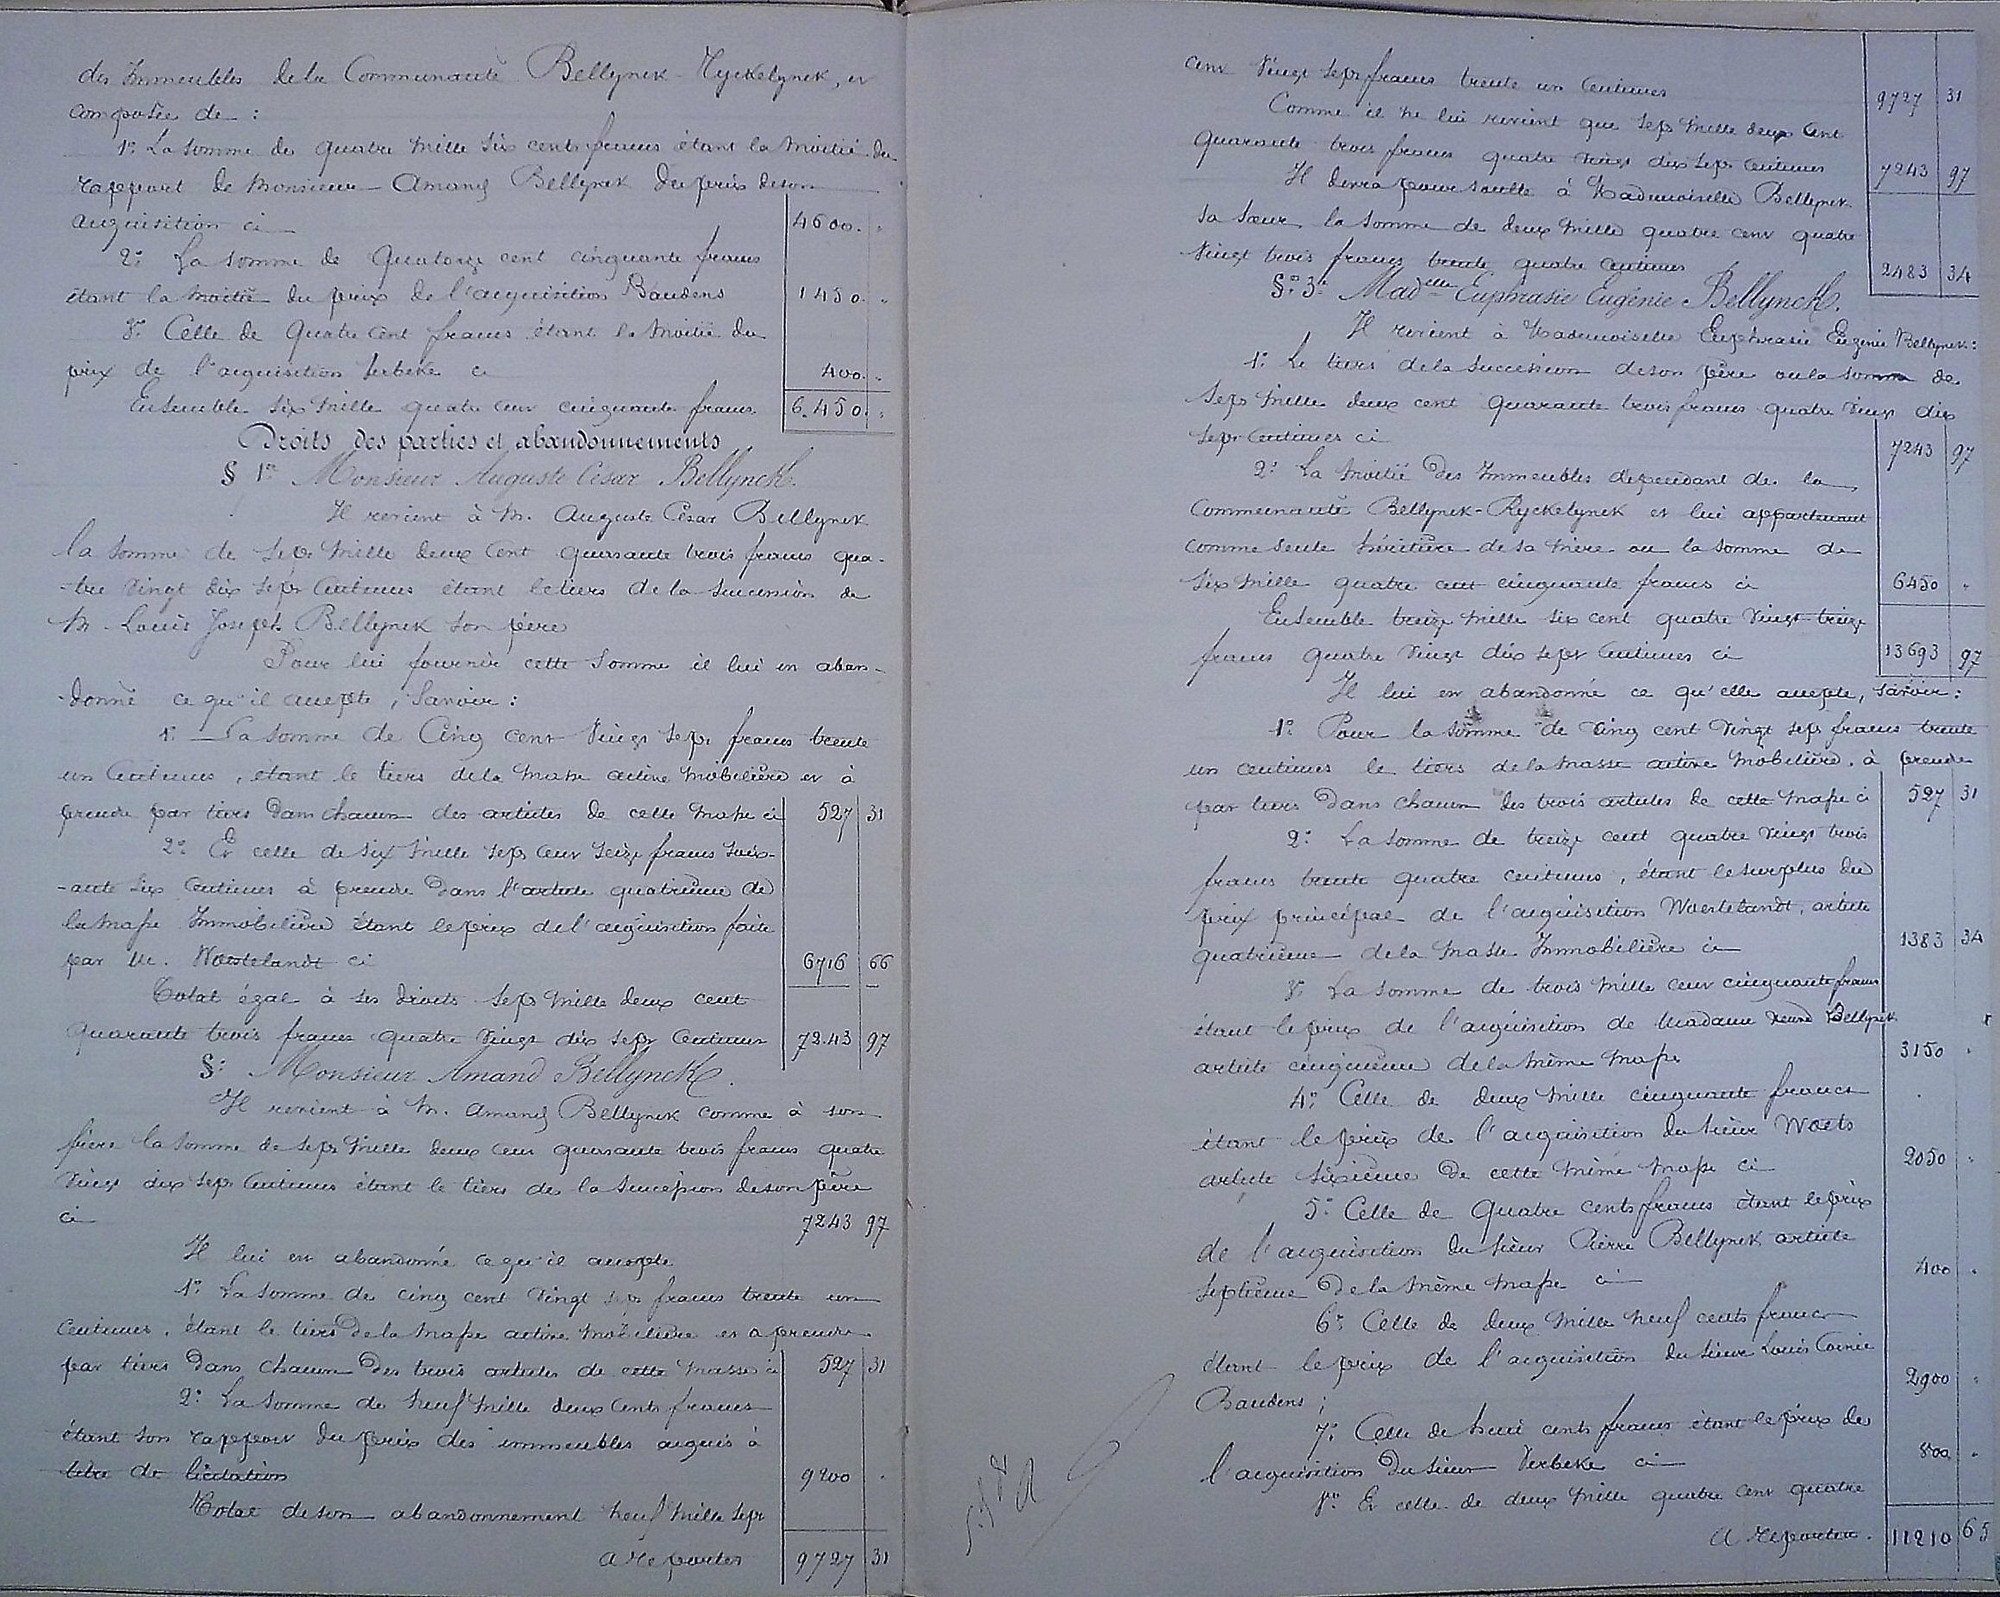 des Immeubles de la Communauté Bellynck-Ryckelynck, et
composée de :
1º La somme de quatre mille six cents francs étant la moitié du
rapport de Monsieur Amand Bellynck du prix de son
acquisition ci 4600. "
2º La somme de Quatorze cent cinquante francs
étant la moitié du prix de l'acquisition Baudens 1450. "
3º Celle de Quatre cent francs étant la moitié du
prix de l'acquisition Verbeke ci 400. "
Ensemble six mille quatre cent cinquante francs 6.450. "
Droits des parties et abandonnements
§ 1er Monsieur Auguste César Bellynck.
Il revient à M. Auguste César Bellynck
la somme de sept mille deux cent quarante trois francs qua-
-tre vingt dix sept centimes étant le tiers de la succession de
M. Louis Joseph Bellynck son père
Pour lui fournir cette somme il lui en aban-
-donné ce qu'il accepte, savoir :
1º La somme de Cinq cent vingt sept francs trente
un centimes, étant le tiers de la masse active mobilière et à
prendre par tiers dans chacun des articles de cette masse ci 527 31
2º Et celle de six mille sept cent seize francs soix-
-ante six centimes à prendre dans l'article quatrième de
la masse Immobilière étant le prix de l'acquisition faite
par M. Waestelandt ci 6716 66
Total égal à ses droits sept mille deux cent
quarante trois francs quatre vingt dix sept centimes 7243 97
§: Monsieur Amand Bellynck.
Il revient à M. Amand Bellynck comme à son
frère la somme de sept mille deux cent quarante trois francs quatre
vingt dix sept centimes étant le tiers de la succession de son père
ci 7243 97
Il lui en abandonné ce qu'il accepte
1º La somme de cinq cent vingt sept francs trente un
centimes, étant le tiers de la masse active mobilière et à prendre
par tiers dans chacun des trois articles de cette masse ci 527 31
2º La somme de neuf mille deux cents francs
étant son rapport du prix des immeubles acquis à
titre de licitation 9200 "
Total de son abandonnement neuf mille sept
A reporter 9727 31
cent vingt sept francs trente un centimes 9727 31
Comme il ne lui revient que sept mille deux cent
quarante trois francs quatre vingt dix sept centimes 7243 97
Il devra pour soulte à Mademoiselle Bellynck
sa sœur la somme de deux mille quatre cent quatre
vingt trois francs trente quatre centimes 2483 34
§ 3º Madelle Euphrasie Eugénie Bellynck.
Il revient à Mademoiselle Euphrasie Eugénie Bellynck :
1º Le tiers de la succession de son père ou la somme de
sept mille deux cent quarante trois francs quatre vingt dix
sept centimes ci 7243 97
2º La moitié des Immeubles dépendant de la
communauté Bellynck-Ryckelynck et lui appartenant
comme seule héritière de sa mère ou la somme de
six mille quatre cent cinquante francs ci 6450 "
Ensemble treize mille six cent quatre vingt treize
francs quatre vingt dix sept centimes ci 13693 97
Il lui en abandonné ce qu'elle accepte, savoir :
1º Pour la somme de cinq cent vingt sept francs trente
un centimes le tiers de la masse active mobilière, à prendre
par tiers dans chacun des trois articles de cette masse ci 527 31
2º La somme de treize cent quatre vingt trois
francs trente quatre centimes, étant le surplus du
prix principal de l'acquisition Waestelandt, article
quatrième de la masse Immobilière ci 1383 34
3º La somme de trois mille cent cinquante francs
étant le prix de l'acquisition de Madame veuve Bellynck
article cinquième de la même masse 3150 "
4º Celle de deux mille cinquante francs
étant le prix de l'acquisition du sieur Waets
article sixième de cette même masse ci 2050 "
5º Celle de Quatre cents francs étant le prix
de l'acquisition du sieur Pierre Bellynck article
septième de la même masse ci 400 "
6º Celle de deux mille neuf cents francs
étant le prix de l'acquisition du sieur Louis
Baudens ; 2900 "
7º Celle de huit cents francs étant le prix de
l'acquisition du sieur Verbeke ci 800 "
8º Et celle de deux mille quatre cent quatre
A reporter. 11210 65